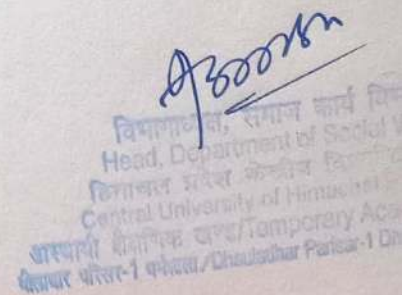 विभागाध्यक्ष, समाज कार्य
Head, Department of Social
हिमाचल प्रदेश केन्द्रीय
Central University of Himachal
अस्थायी शैक्षणिक खण्ड/Temporary Aca
धौलाधार परिसर-1 धर्मशाला/Dhauladhar Parisar-1 Dh